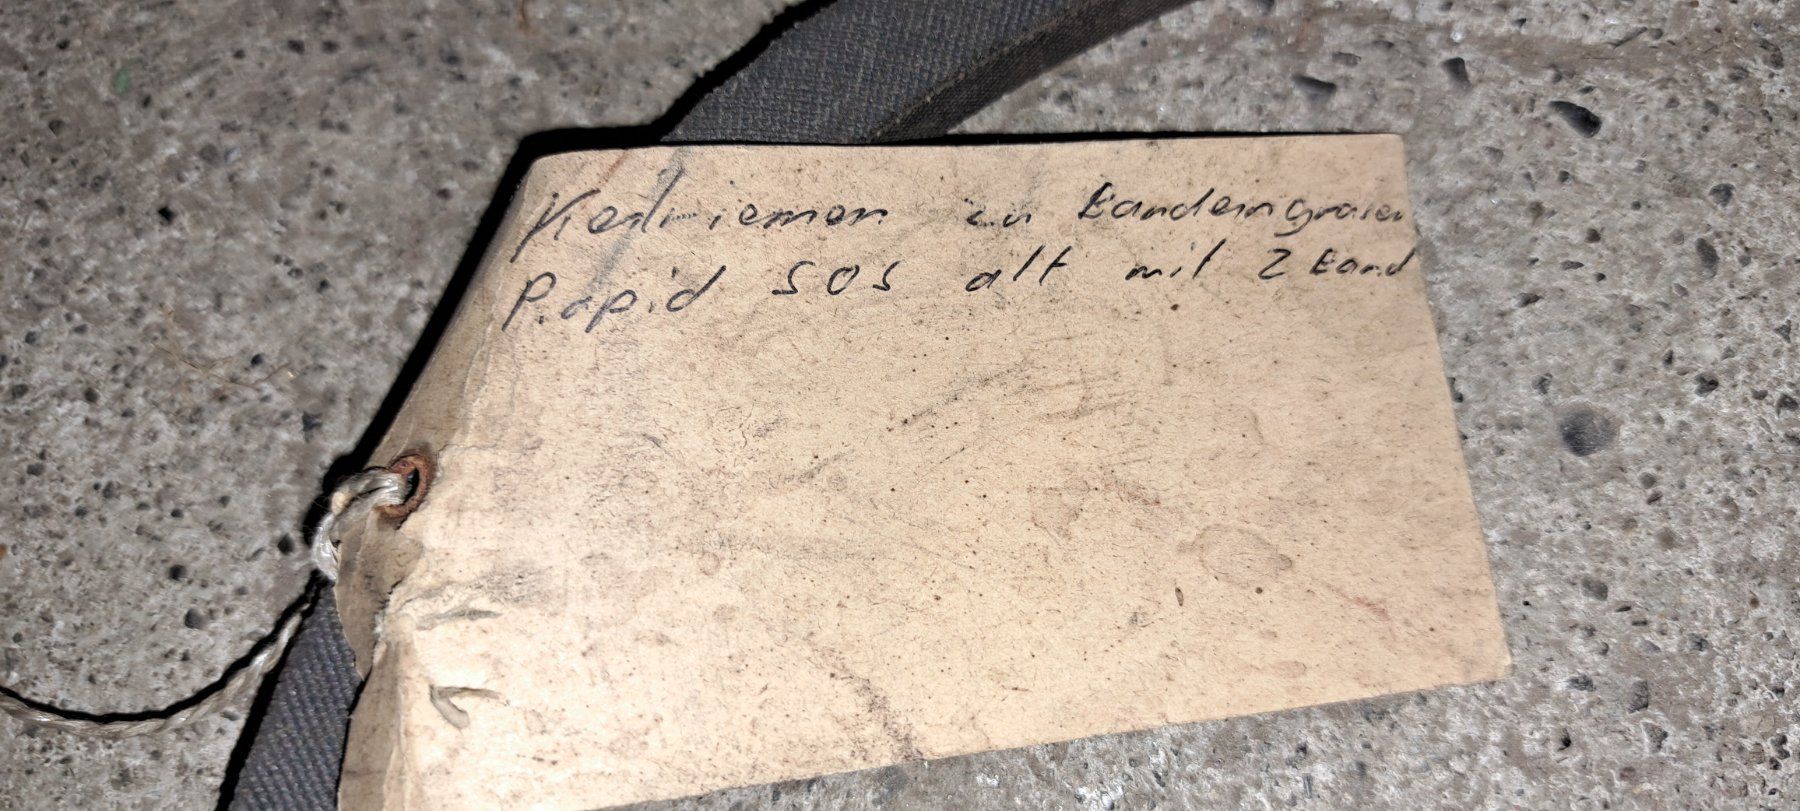 Keilriemen zu Bandeingraser
Rapid 505 alt mit 2 Band